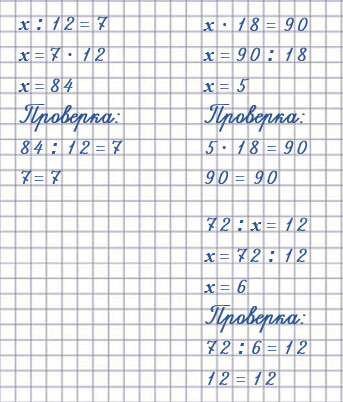 x : 12 = 7
x = 7 · 12
x = 84
Проверка:
84 : 12 = 7
7 = 7
x · 18 = 90
x = 90 : 18
x = 5
Проверка:
5 · 18 = 90
90 = 90
72 : x = 12
x = 72 : 12
x = 6
Проверка:
72 : 6 = 12
12 = 12